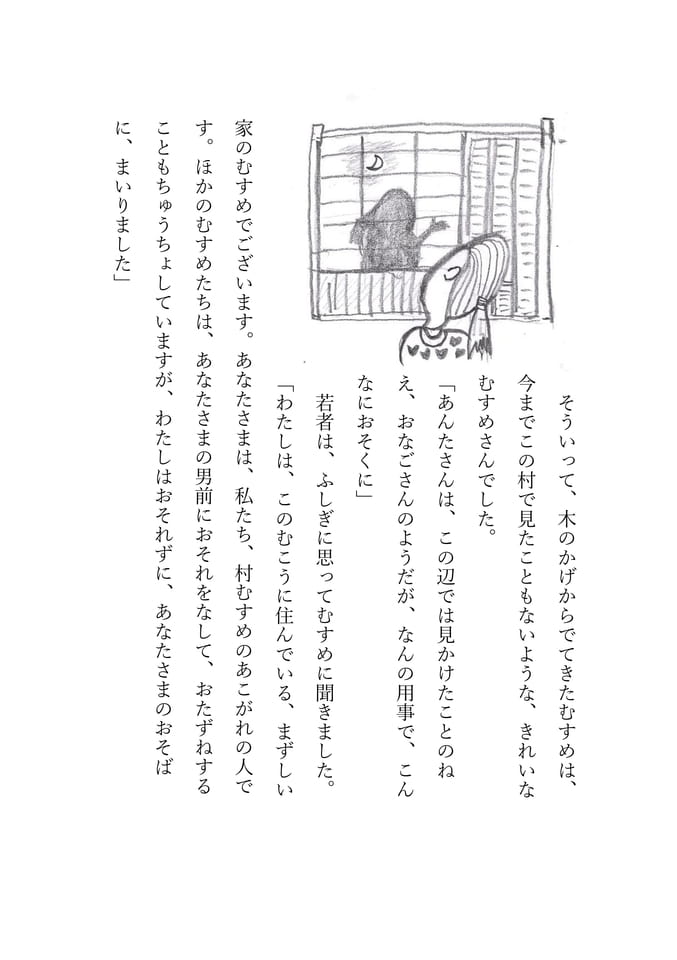 そういって、木のかげからでてきたむすめは、
今までこの村で見たこともないような、きれいな
むすめさんでした。
「あんたさんは、この辺では見かけたことのね
え、おなごさんのようだが、なんの用事で、こん
なにおそくに」
　若者は、ふしぎに思ってむすめに聞きました。
「わたしは、このむこうに住んでいる、まずしい
家のむすめでございます。あなたさまは、私たち、村むすめのあこがれの人で
す。ほかのむすめたちは、あなたさまの男前におそれをなして、おたずねする
こともちゅうちょしていますが、わたしはおそれずに、あなたさまのおそば
に、まいりました」